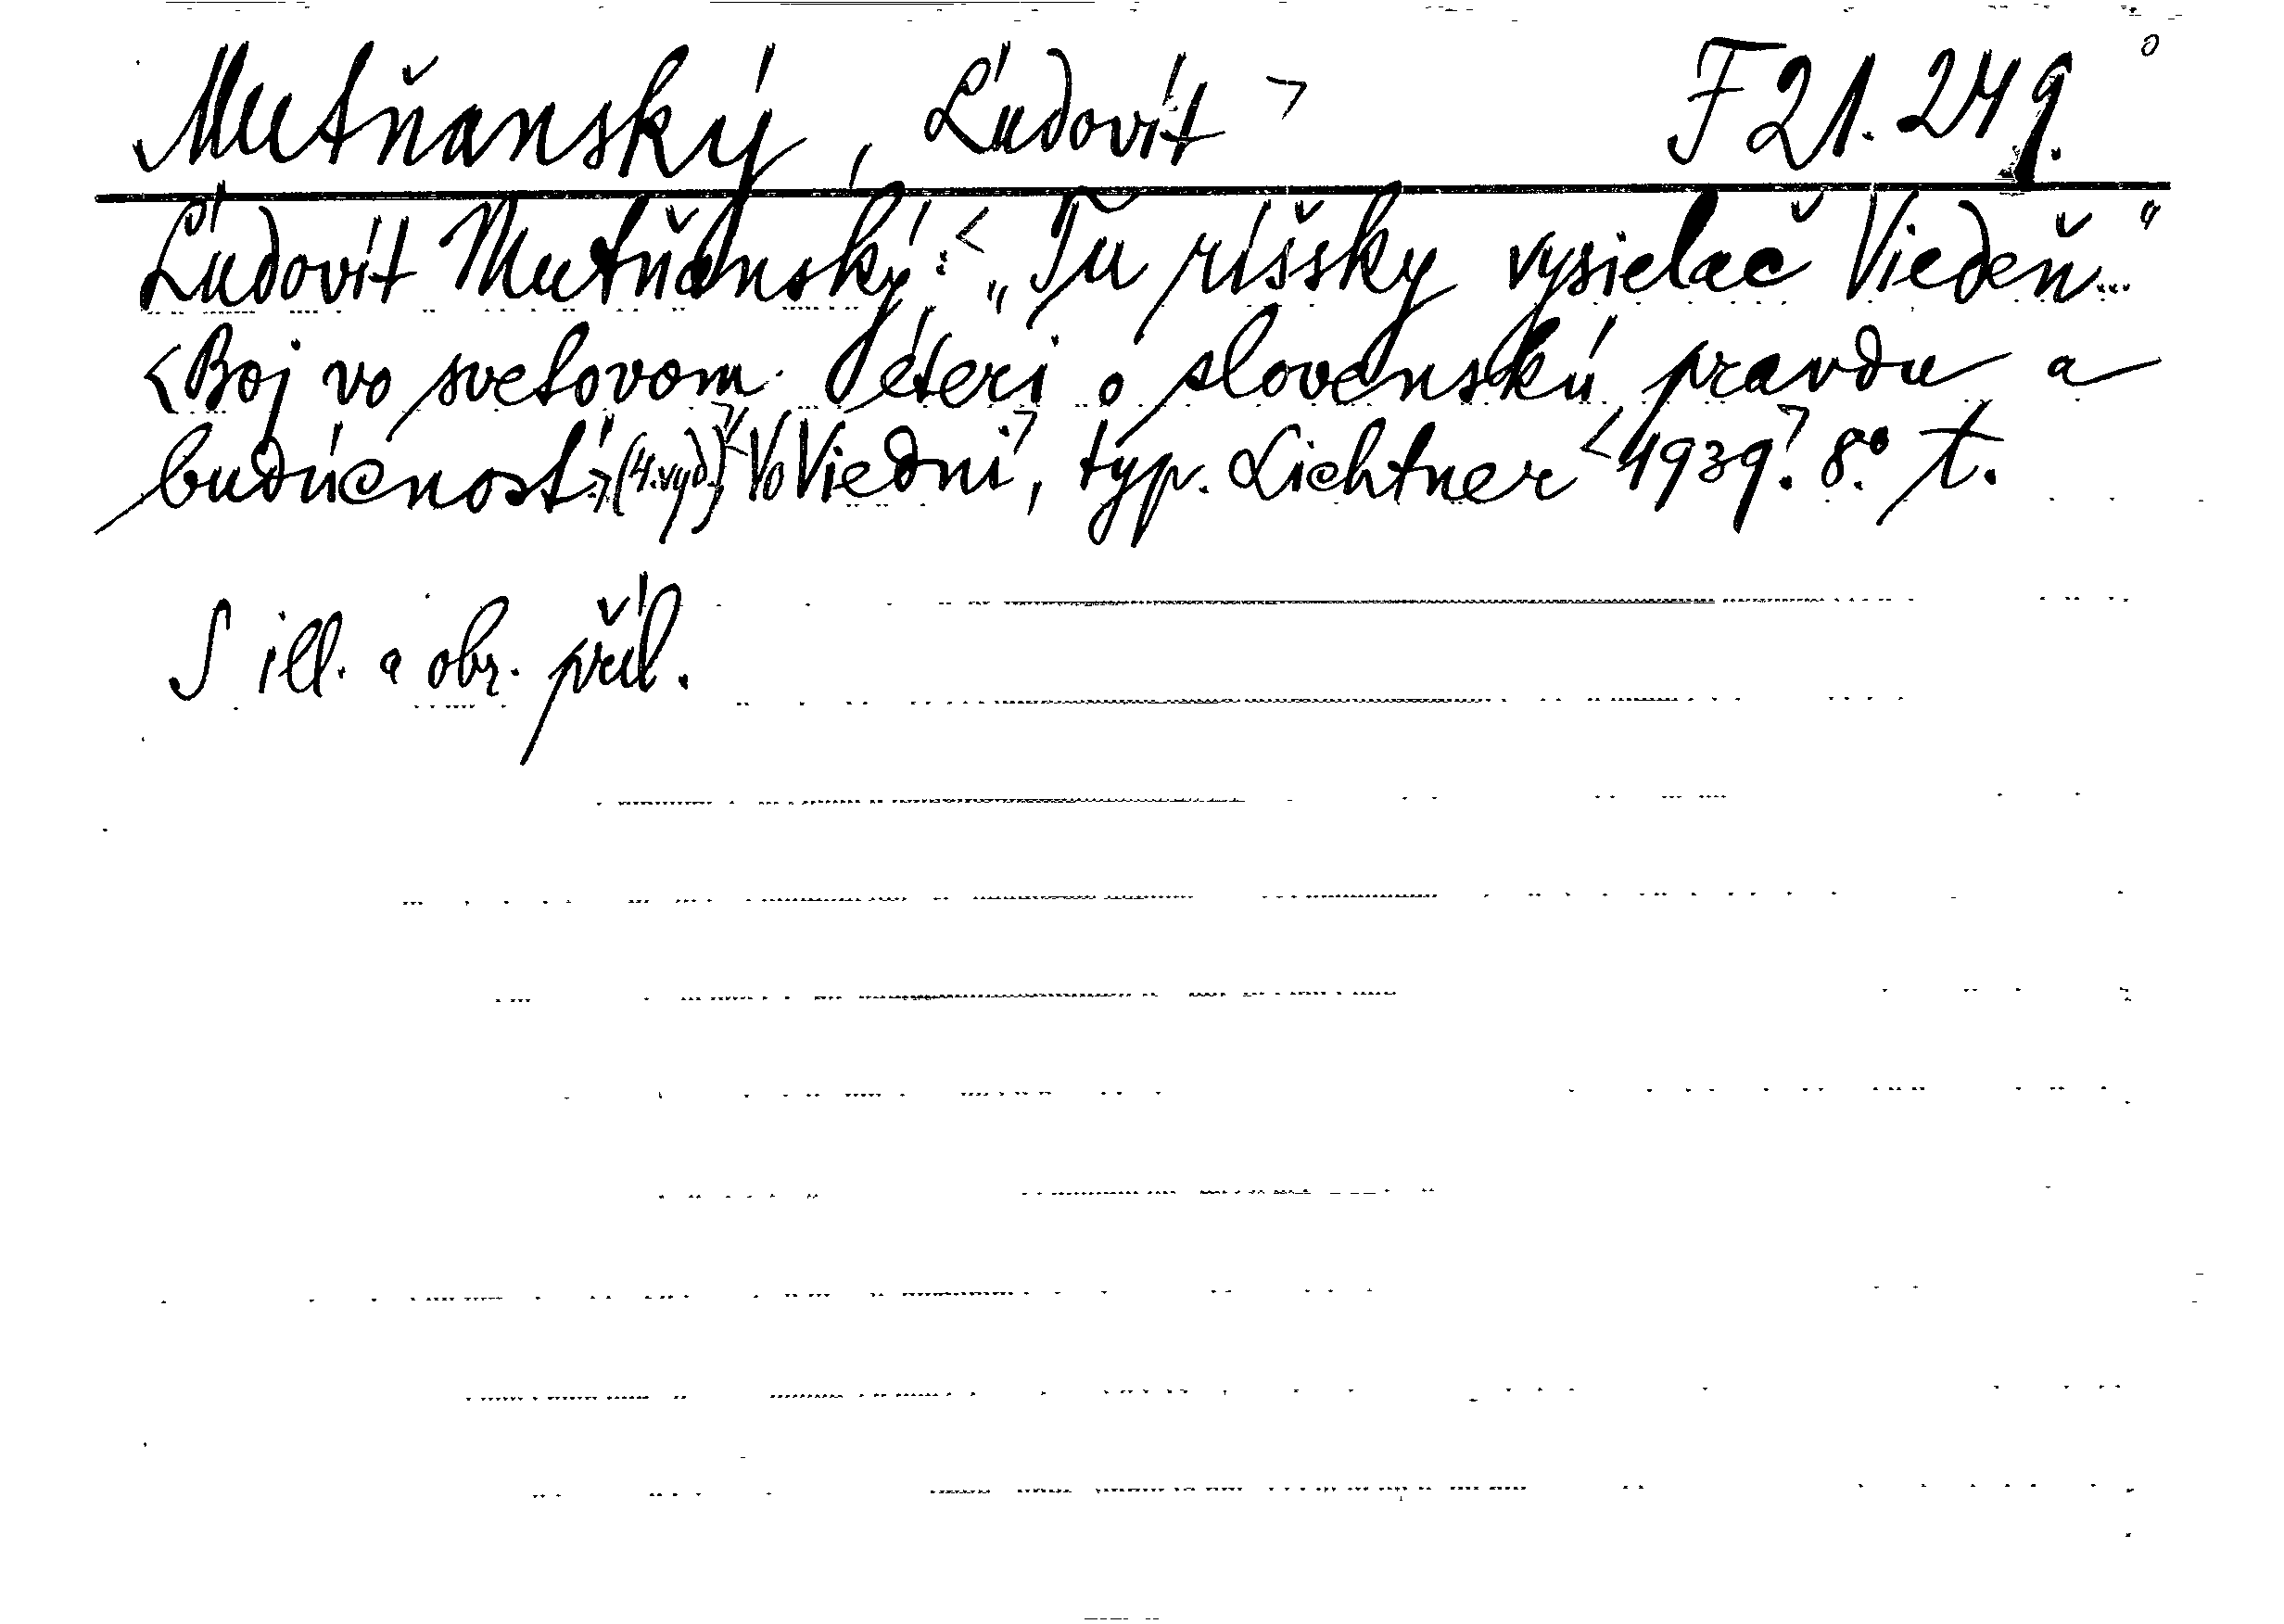 Mutňanský, Ľudovít > F 21.249.
Ľudovít Mutňanský: < „Tu ríšsky vysielač Viedeň..."
<Boj vo svetovom éteri o slovenskú pravdu a
budúcnosť.> (4. vyd.) > < Vo Viedni >, typ. Lichtner < 1939 >. 8°. t.
S ill. a obr. příl.